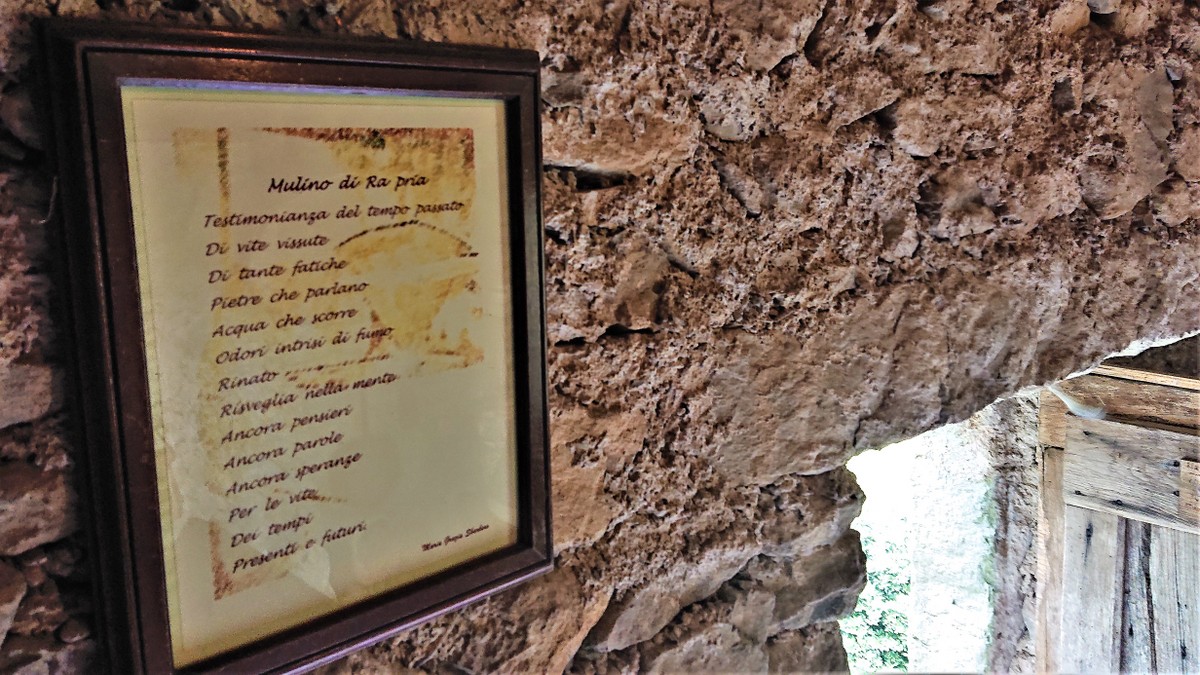 Mulino di Ra pria
Testimonianza del tempo passato
Di vite vissute
Di tante fatiche
Pietre che parlano
Acqua che scorre
Odori intrisi di fumo
Rinato
Risveglia nella mente
Ancora pensieri
Ancora parole
Ancora speranze
Per le vite
Dei tempi
Presenti e futuri.
Maria Grazia